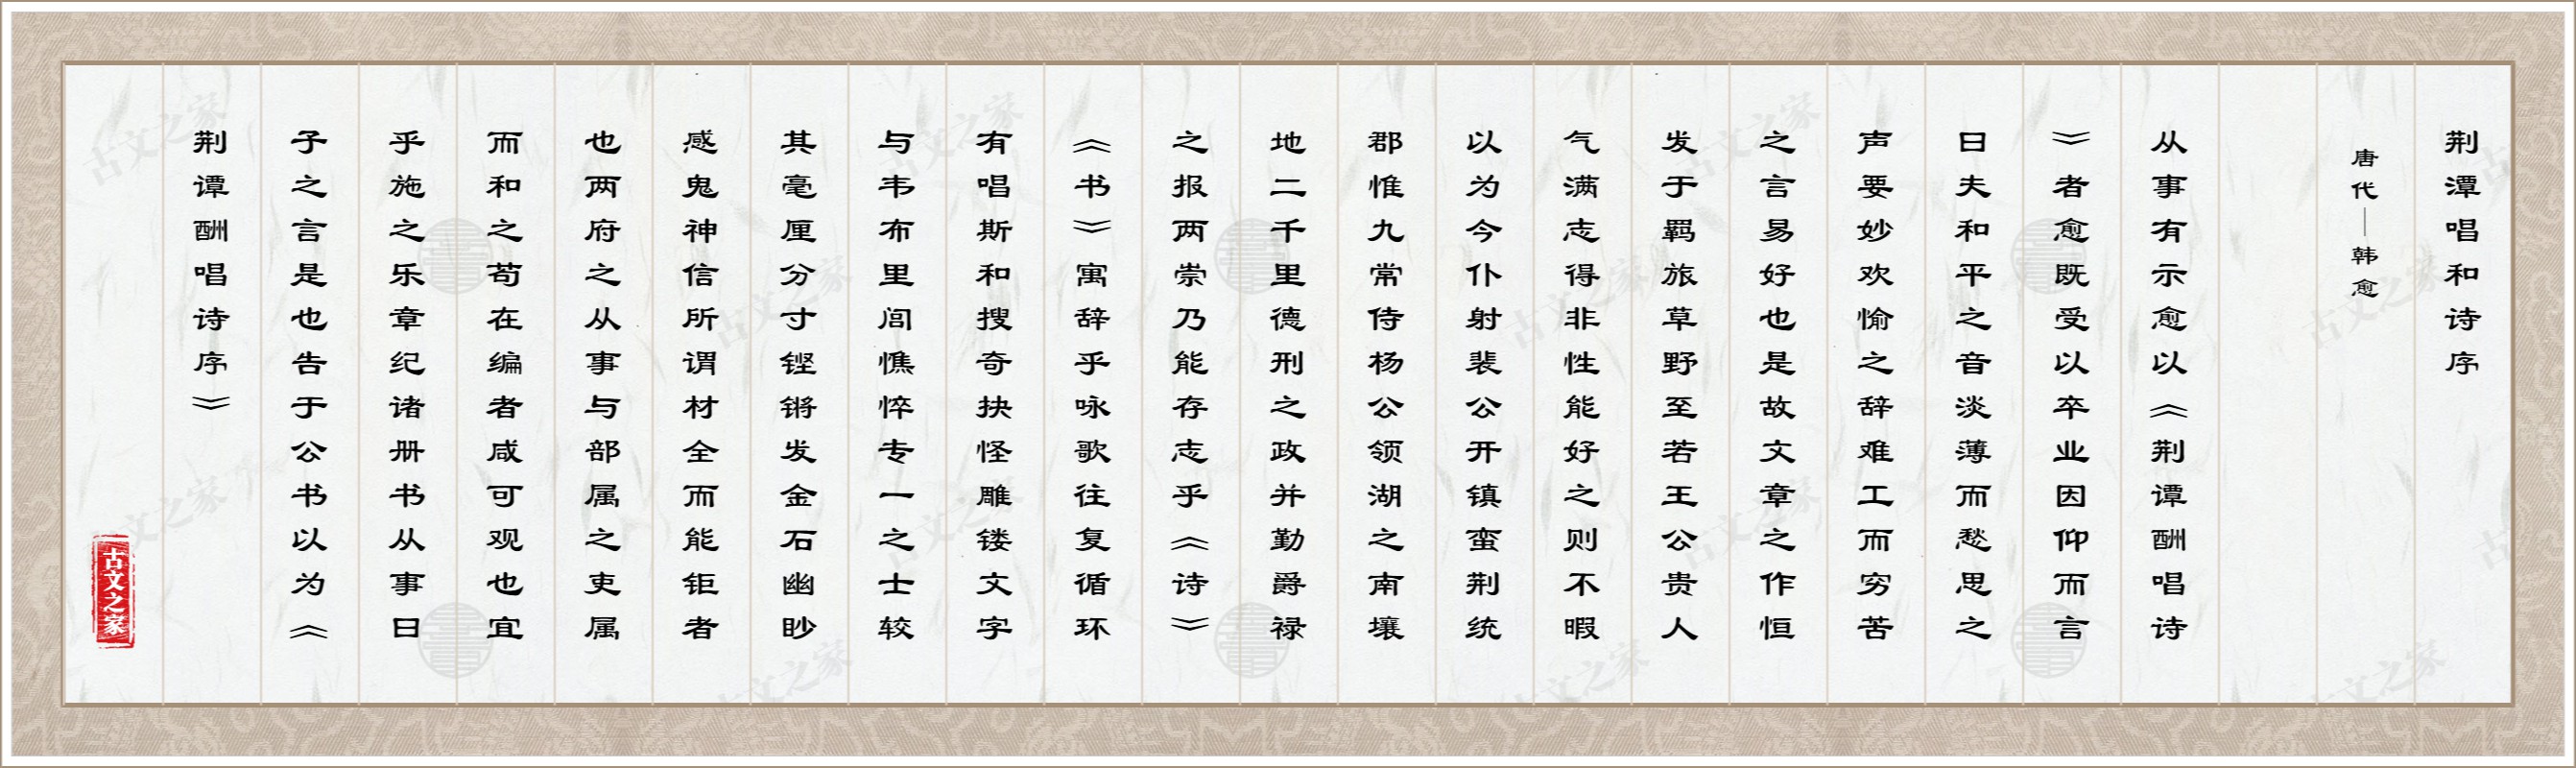 荆潭唱和诗序
唐代—韩愈
从事有示愈以《荆谭酬唱诗
》者愈既受以卒业因仰而言
曰夫和平之音淡薄而愁思之
声要妙欢愉之辞难工而穷苦
之言易好也是故文章之作恒
发于羁旅草野至若王公贵人
气满志得非性能好之则不暇
以为今仆射裴公开镇蛮荆统
郡惟九常侍杨公领湖之南壤
地二千里德刑之政并勤爵禄
之报两崇乃能存志乎《诗》
《书》寓辞乎咏歌往复循环
有唱斯和搜奇抉怪雕镂文字
与韦布里闾憔悴专一之士较
其毫厘分寸铿锵发金石幽眇
感鬼神信所谓材全而能钜者
也两府之从事与部属之吏属
而和之苟在编者咸可观也宜
乎施之乐章纪诸册书从事曰
子之言是也告于公书以为《
荆谭酬唱诗序》
古文之家